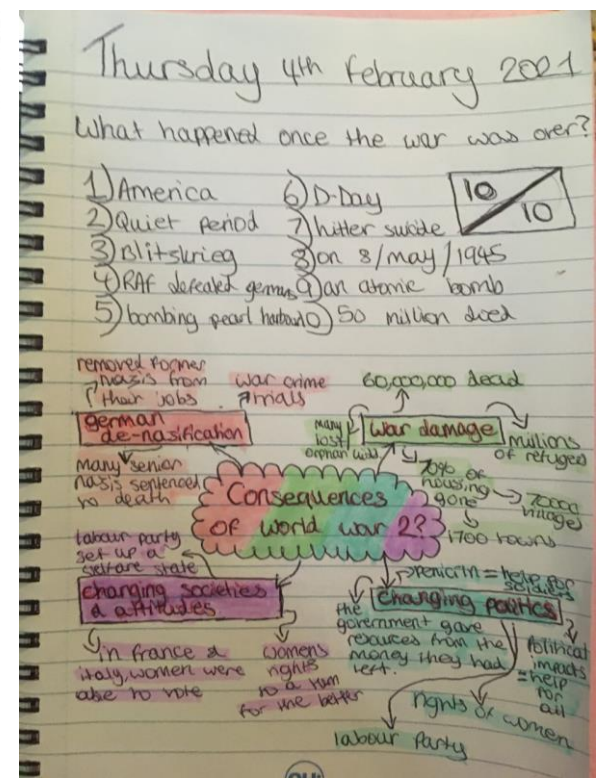 Thursday 4th february 2021
What happened once the war was over?
1) America
2) Quiet period
3) Blitskrieg
4) RAF defealed germans
5) bombing pearl harbour
6) D-Day
7) hitler suicide
8) on 8/may/1945
9) an atomic bomb
10) 50 million died
10/10
removed former
nazis from
their jobs
war crime
trials
german
de-nasification
many senior
nasis sentenced
to death
60,000,000 dead
war damage
many
lost
orphan
millions
of refugees
70% of
housing
gone
70000
villages
1700 towns
Consequences
of world war 2?
Labour party
set up a
welfare state
changing societies
& attitudes
in france &
italy, women were
able to vote
womens
rights
to a turn
for the better
= help for
soldiers
changing politics
the
government gave
resources from the
money they had
left.
Political
impacts
= help
for
all
rights of women
labour party